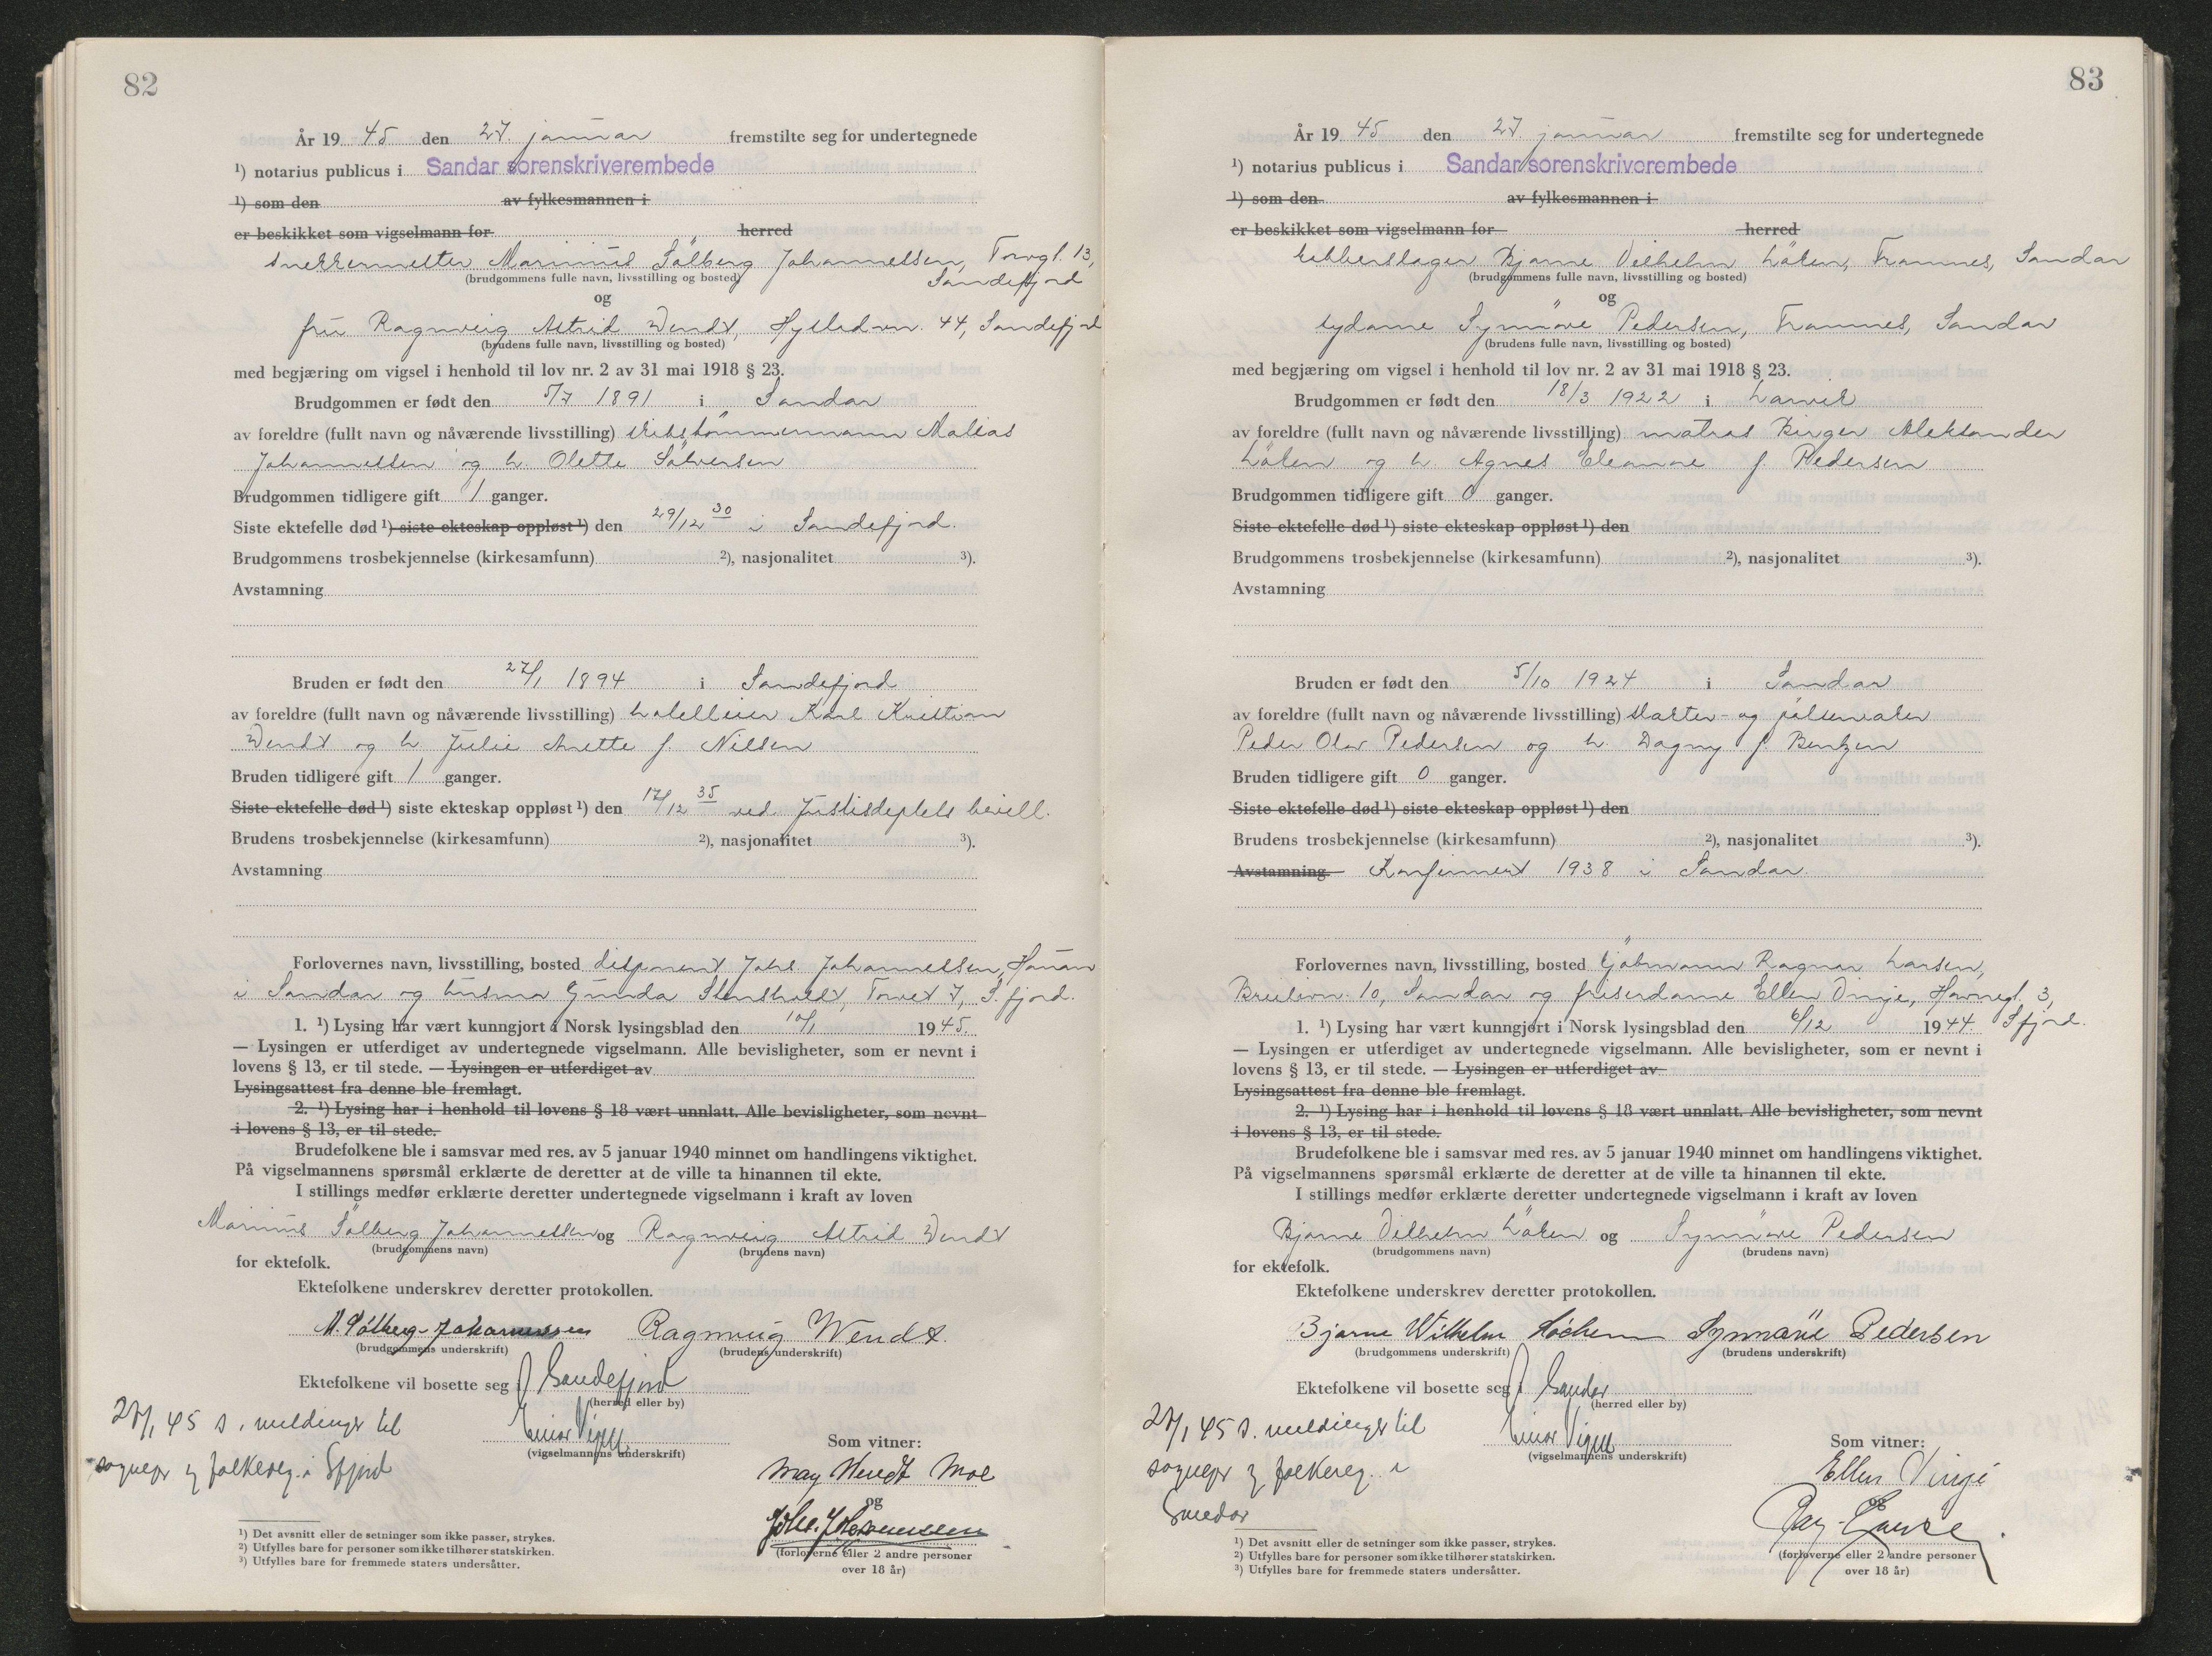 82
År 19 45 den 27. januar fremstilte seg for undertegnede
¹) notarius publicus i Sandar sorenskriverembede
¹) som den av fylkesmannen i
er beskikket som vigselmann for herred
snekkermester Marinius Sölberg Johannessen, Torvgt. 13,
Sandefjord
(brudgommens fulle navn, livsstilling og bosted)
og
fru Ragnveig Astrid Wendt, Hystadvn. 44, Sandefjord
(brudens fulle navn, livsstilling og bosted)
med begjæring om vigsel i henhold til lov nr. 2 av 31 mai 1918 § 23.
Brudgommen er født den 5/7 1891 i Sandar
av foreldre (fullt navn og nåværende livsstilling) skibstömmermann Matias
Johannessen og h. Olette Sölversen
Brudgommen tidligere gift 1 ganger.
Siste ektefelle død ¹) siste ekteskap oppløst ¹) den 29/12 30 i Sandefjord.
Brudgommens trosbekjennelse (kirkesamfunn) ²), nasjonalitet ³).
Avstamning
Bruden er født den 27/1 1894 i Sandefjord
av foreldre (fullt navn og nåværende livsstilling) hotelleier Karl Kristian
Wendt og h. Julie Anette f. Nilsen
Bruden tidligere gift 1 ganger.
Siste ektefelle død ¹) siste ekteskap oppløst ¹) den 17/12 35 ved Justisdeptets bevill.
Brudens trosbekjennelse (kirkesamfunn) ²), nasjonalitet ³).
Avstamning
Forlovernes navn, livsstilling, bosted disponent Johs Johannessen,
i Sandar og husmor Gunda Stensholt, Torvet 7, S.fjord.
1. ¹) Lysing har vært kunngjort i Norsk lysingsblad den 10/1 1945.
— Lysingen er utferdiget av undertegnede vigselmann. Alle bevisligheter, som er nevnt i
lovens § 13, er til stede. — Lysingen er utferdiget av
Lysingsattest fra denne ble fremlagt.
2. ¹) Lysing har i henhold til lovens § 18 vært unnlatt. Alle bevisligheter, som nevnt
i lovens § 13, er til stede.
Brudefolkene ble i samsvar med res. av 5 januar 1940 minnet om handlingens viktighet.
På vigselmannens spørsmål erklærte de deretter at de ville ta hinannen til ekte.
I stillings medfør erklærte deretter undertegnede vigselmann i kraft av loven
Marinius Sölberg Johannessen og Ragnveig Astrid Wendt
(brudgommens navn) (brudens navn)
for ektefolk.
Ektefolkene underskrev deretter protokollen.
M. Sölberg-Johannessen Ragnveig Wendt.
(brudgommens underskrift) (brudens underskrift)
Ektefolkene vil bosette seg i Sandefjord
(herred eller by)
27/1 45 s. meldinger til
Einar Vigen
(vigselmannens underskrift)
sognepr og folkereg. i Sfjord
Som vitner:
May Wendt Moe
og
Johs. Johannessen
(forloverne eller 2 andre personer
over 18 år)
¹) Det avsnitt eller de setninger som ikke passer, strykes.
²) Utfylles bare for personer som ikke tilhører statskirken.
³) Utfylles bare for fremmede staters undersåtter.
83
År 19 45 den 27. januar fremstilte seg for undertegnede
¹) notarius publicus i Sandar sorenskriverembede
¹) som den av fylkesmannen i
er beskikket som vigselmann for herred
kobberslager Bjarne Vilhelm Löken, Framnes, Sandar
(brudgommens fulle navn, livsstilling og bosted)
og
sydame Synnöve Pedersen, Framnes, Sandar
(brudens fulle navn, livsstilling og bosted)
med begjæring om vigsel i henhold til lov nr. 2 av 31 mai 1918 § 23.
Brudgommen er født den 18/3 1922 i Larvik
av foreldre (fullt navn og nåværende livsstilling) matros Birger Aleksander
Löken og h. Agnes Eleonore f. Pedersen
Brudgommen tidligere gift 0 ganger.
Siste ektefelle død ¹) siste ekteskap oppløst ¹) den
Brudgommens trosbekjennelse (kirkesamfunn) ²), nasjonalitet ³).
Avstamning
Bruden er født den 5/10 1924 i Sandar
av foreldre (fullt navn og nåværende livsstilling) slakter- og pölsemaker
Peder Olav Pedersen og h. Dagny f. Bentzen
Bruden tidligere gift 0 ganger.
Siste ektefelle død ¹) siste ekteskap oppløst ¹) den
Brudens trosbekjennelse (kirkesamfunn) ²), nasjonalitet ³).
Avstamning Konfirmert 1938 i Sandar
Forlovernes navn, livsstilling, bosted sjömann Ragnar Larsen,
10, Sandar og friserdame Ellen Vinje, Havnegt. 3,
Sfjord.
1. ¹) Lysing har vært kunngjort i Norsk lysingsblad den 6/12 1944
— Lysingen er utferdiget av undertegnede vigselmann. Alle bevisligheter, som er nevnt i
lovens § 13, er til stede. — Lysingen er utferdiget av
Lysingsattest fra denne ble fremlagt.
2. ¹) Lysing har i henhold til lovens § 18 vært unnlatt. Alle bevisligheter, som nevnt
i lovens § 13, er til stede.
Brudefolkene ble i samsvar med res. av 5 januar 1940 minnet om handlingens viktighet.
På vigselmannens spørsmål erklærte de deretter at de ville ta hinannen til ekte.
I stillings medfør erklærte deretter undertegnede vigselmann i kraft av loven
Bjarne Vilhelm Löken og Synnöve Pedersen
(brudgommens navn) (brudens navn)
for ektefolk.
Ektefolkene underskrev deretter protokollen.
Bjarne Wilhelm Synnöve Pedersen
(brudgommens underskrift) (brudens underskrift)
Ektefolkene vil bosette seg i Sandar
(herred eller by)
27/1 45 s. meldinger til
Einar Vigen
(vigselmannens underskrift)
sognepr og folkereg. i
Sandar
Som vitner:
Ellen Vinje
og
(forloverne eller 2 andre personer
over 18 år)
¹) Det avsnitt eller de setninger som ikke passer, strykes.
²) Utfylles bare for personer som ikke tilhører statskirken.
³) Utfylles bare for fremmede staters undersåtter.